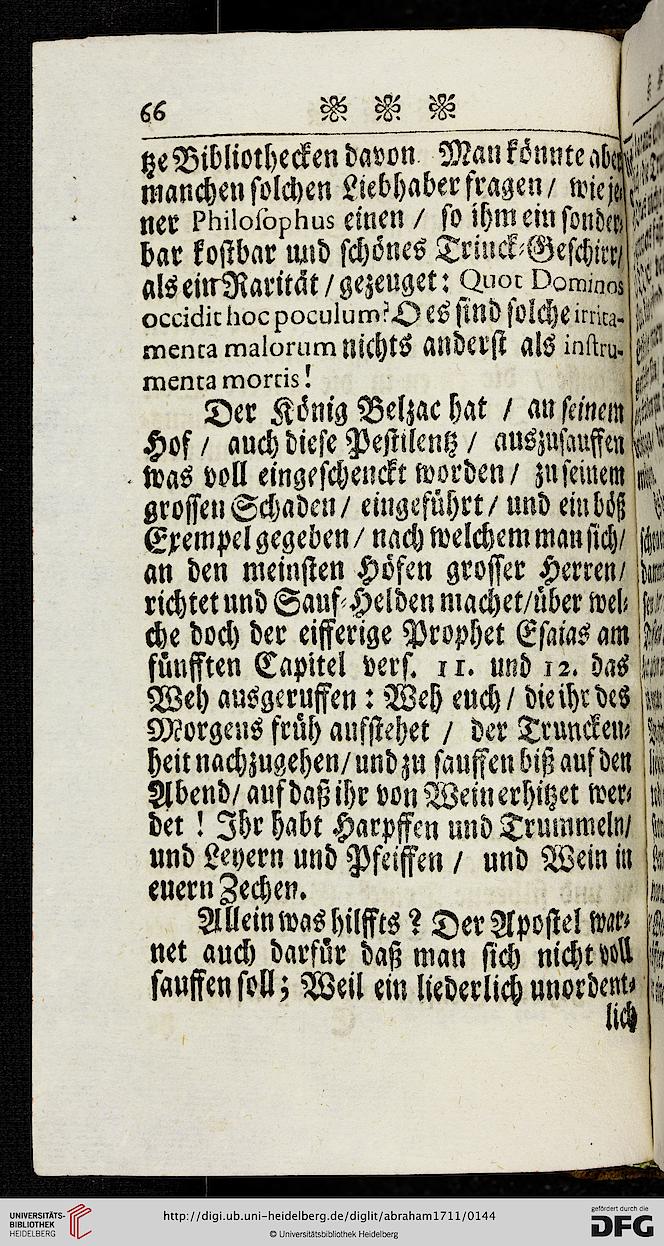 66
tze Bibliothecken davon. Man könnte aber
manchen solchen Liebhaber fragen / wie je-
ner Philosophus einen / so ihm ein sonder-
bar kostbar und schönes Trinck-Geschirr /
als ein Rarität / gezeuget: Quot Dominos
occidit hoc poculum? O es sind solche irrita-
menta malorum nichts anderst als instru-
menta mortis!
Der König Belzac hat / an seinem
Hof / auch diese Pestilentz / auszusauffen
was voll eingeschenckt worden / zu seinem
grossen Schaden / eingeführt / und ein böß
Exempel gegeben / nach welchem man sich /
an den meinsten Höfen grosser Herren /
richtet und Sauf-Helden machet / über wel-
che doch der eifferige Prophet Esaias am
fünfften Capitel vers. 11. und 12. das
Weh ausgeruffen: Weh euch / die ihr des
Morgens früh aufstehet / der Truncken-
heit nachzugehen / und zu sauffen biß auf den
Abend / auf daß ihr von Wein erhitzet wer-
det! Ihr habt Harpffen und Trummeln /
und Leyern und Pfeiffen / und Wein in
euern Zechen.
Allein was hilffts? Der Apostel war-
net auch darfür daß man sich nicht voll
sauffen soll; Weil ein liederlich unordent-
lich
UNIVERSITÄTS-
BIBLIOTHEK
HEIDELBERG
http://digi.ub.uni-heidelberg.de/diglit/abraham1711/0144
© Universitätsbibliothek Heidelberg
gefördert durch die
DFG